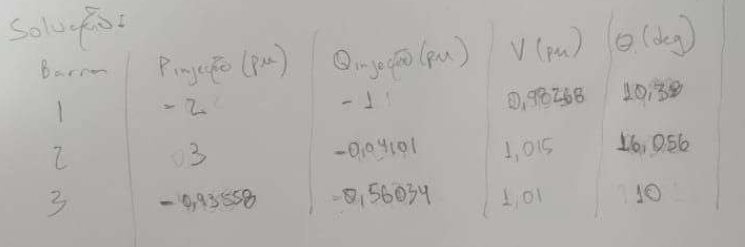 Solução:
Barra P injeção (pu) Q injeção (pu) V (pu) θ (deg)
1 -2 -1 0,98268 10,39
2 3 -0,04101 1,015 16,056
3 -0,93558 -0,56034 1,01 10